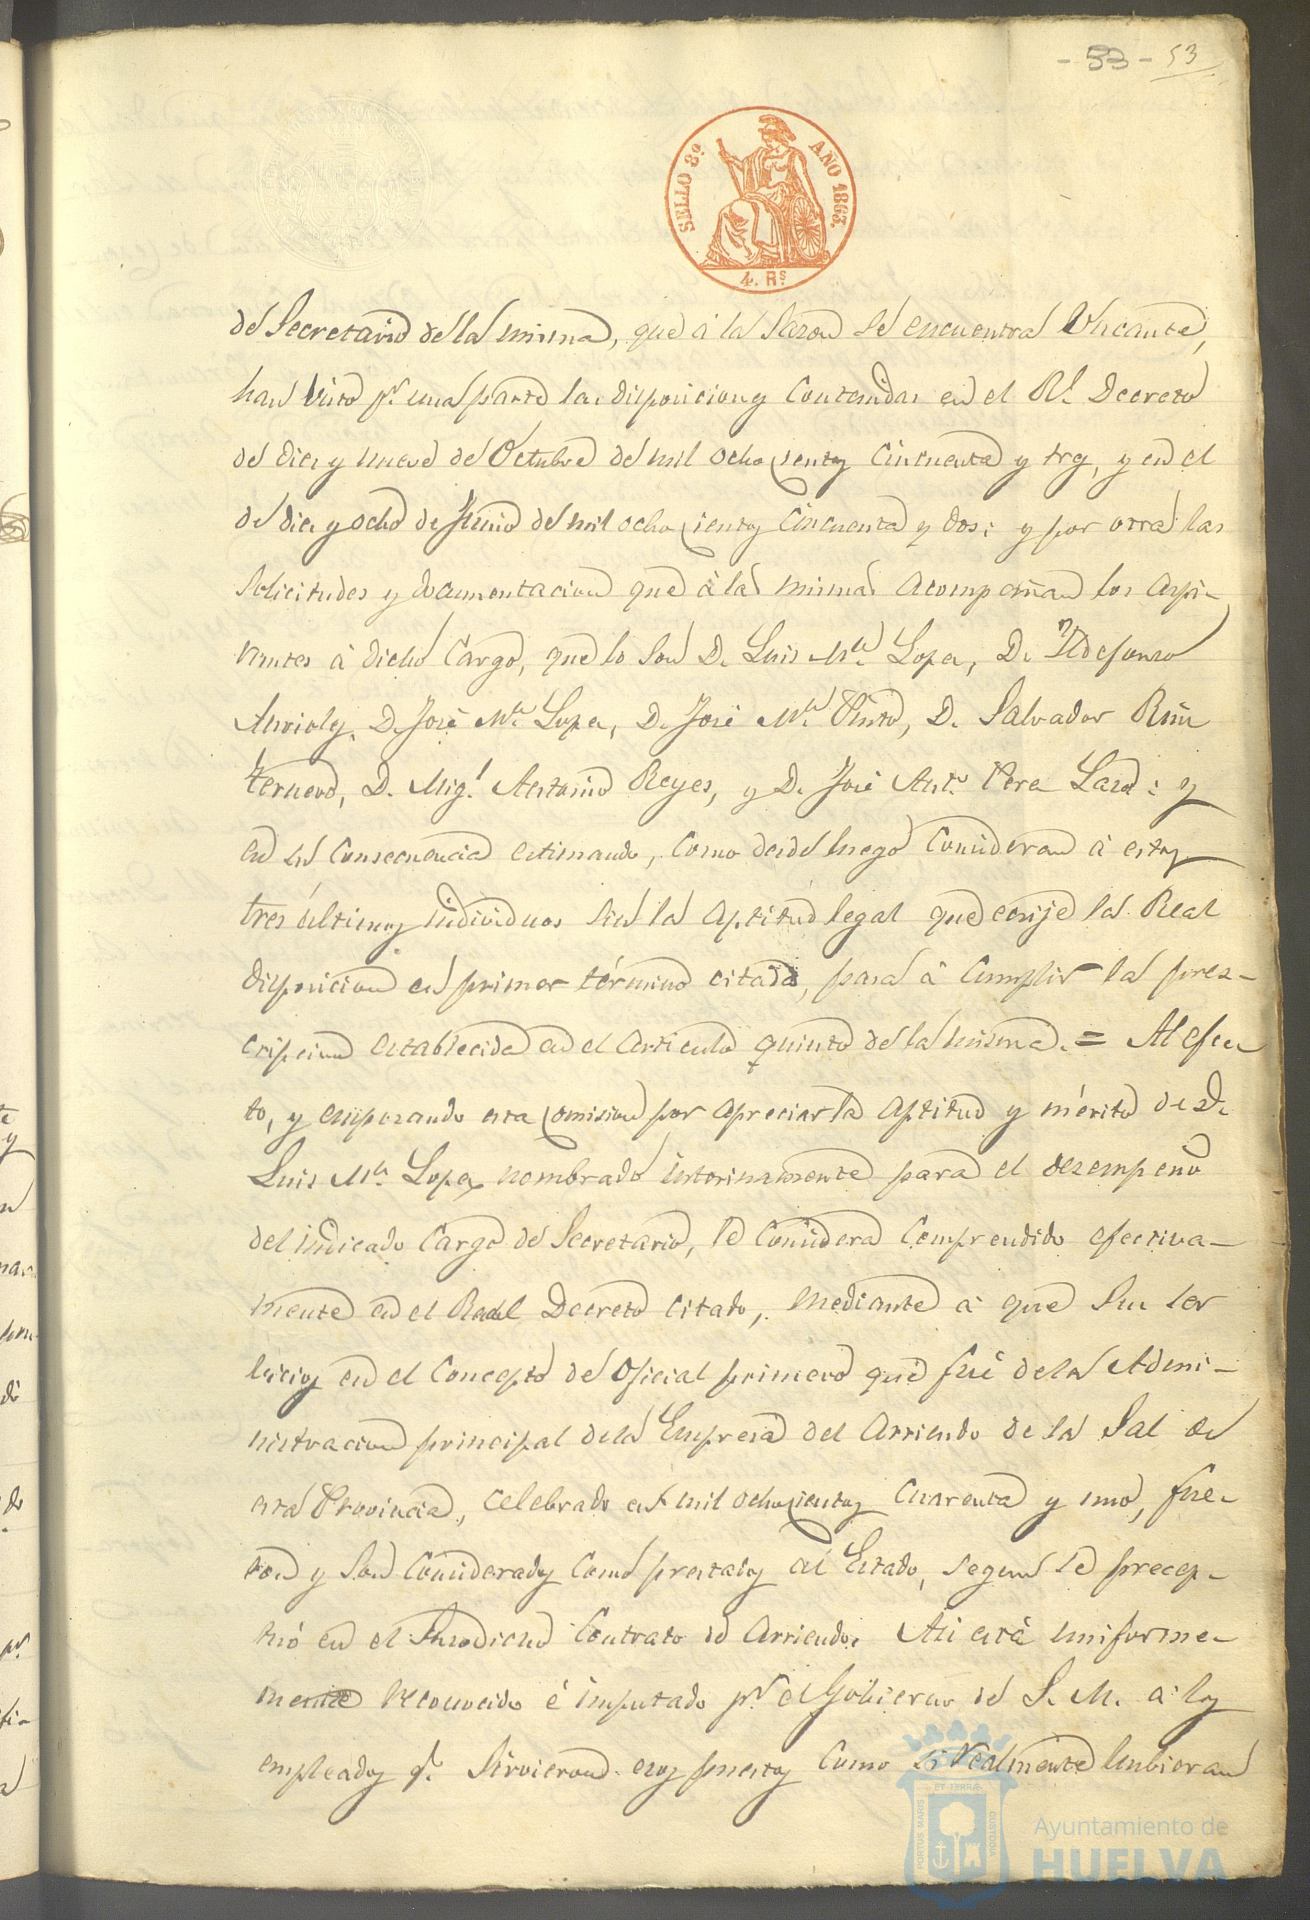 - 53 - 53
SELLO 8º AÑO 1863.
4. Rˢ
de Secretario de la misma, que á la sazon se encuentra Vacante,
han visto pʳ una parte las disposiciones contenidas en el Rˡ Decreto
de diez y nueve de Octubre de mil ochocientos cincuenta y tres, y en el
de diez y ocho de Junio de mil ochocientos cincuenta y dos; y por otra las
solicitudes y documentacion que á las mismas acompañan los aspi-
rantes á dicho Cargo, que lo son D. Luis Mª Lopez, D. Ildefonso
D. José Mª Lopez, D. José Mª Pinto, D. Salvador
D. Migˡ Antonio Reyes, y D. José Antº Vera Lazo: y
en su consecuencia estimando, como desde luego consideran á estos
tres últimos individuos sin la aptitud legal que ecsije la Real
disposicion en primer término citada, pasa á cumplir la pres-
cripcion establecida en el articulo quinto de la misma. = Al efec-
to, y empezando esta Comision por apreciar la aptitud y mérito de D.
Luis Mª Lopez nombrado interinamente para el desempeño
del indicado Cargo de Secretario, le considera comprendido efectiva-
mente en el Real Decreto citado, mediante á que sus ser
vicios en el concepto de Oficial primero que fué de la Admi-
nistracion principal de la Empresa del Arriendo de la Sal de
esta Provincia, celebrado en mil ochocientos cuarenta y uno, fue-
ron y son considerados como prestados al Estado, segun se precep-
tuó en el susodicho Contrato de Arriendo. Asi está uniforme-
mente reconocido é imputado pʳ el Gobierno de S. M. a los
empleados qᵉ sirvieron esos puestos como si realmente hubieran
PORTUS MARIS ET TERRÆ CUSTODIA
Ayuntamiento de
HUELVA